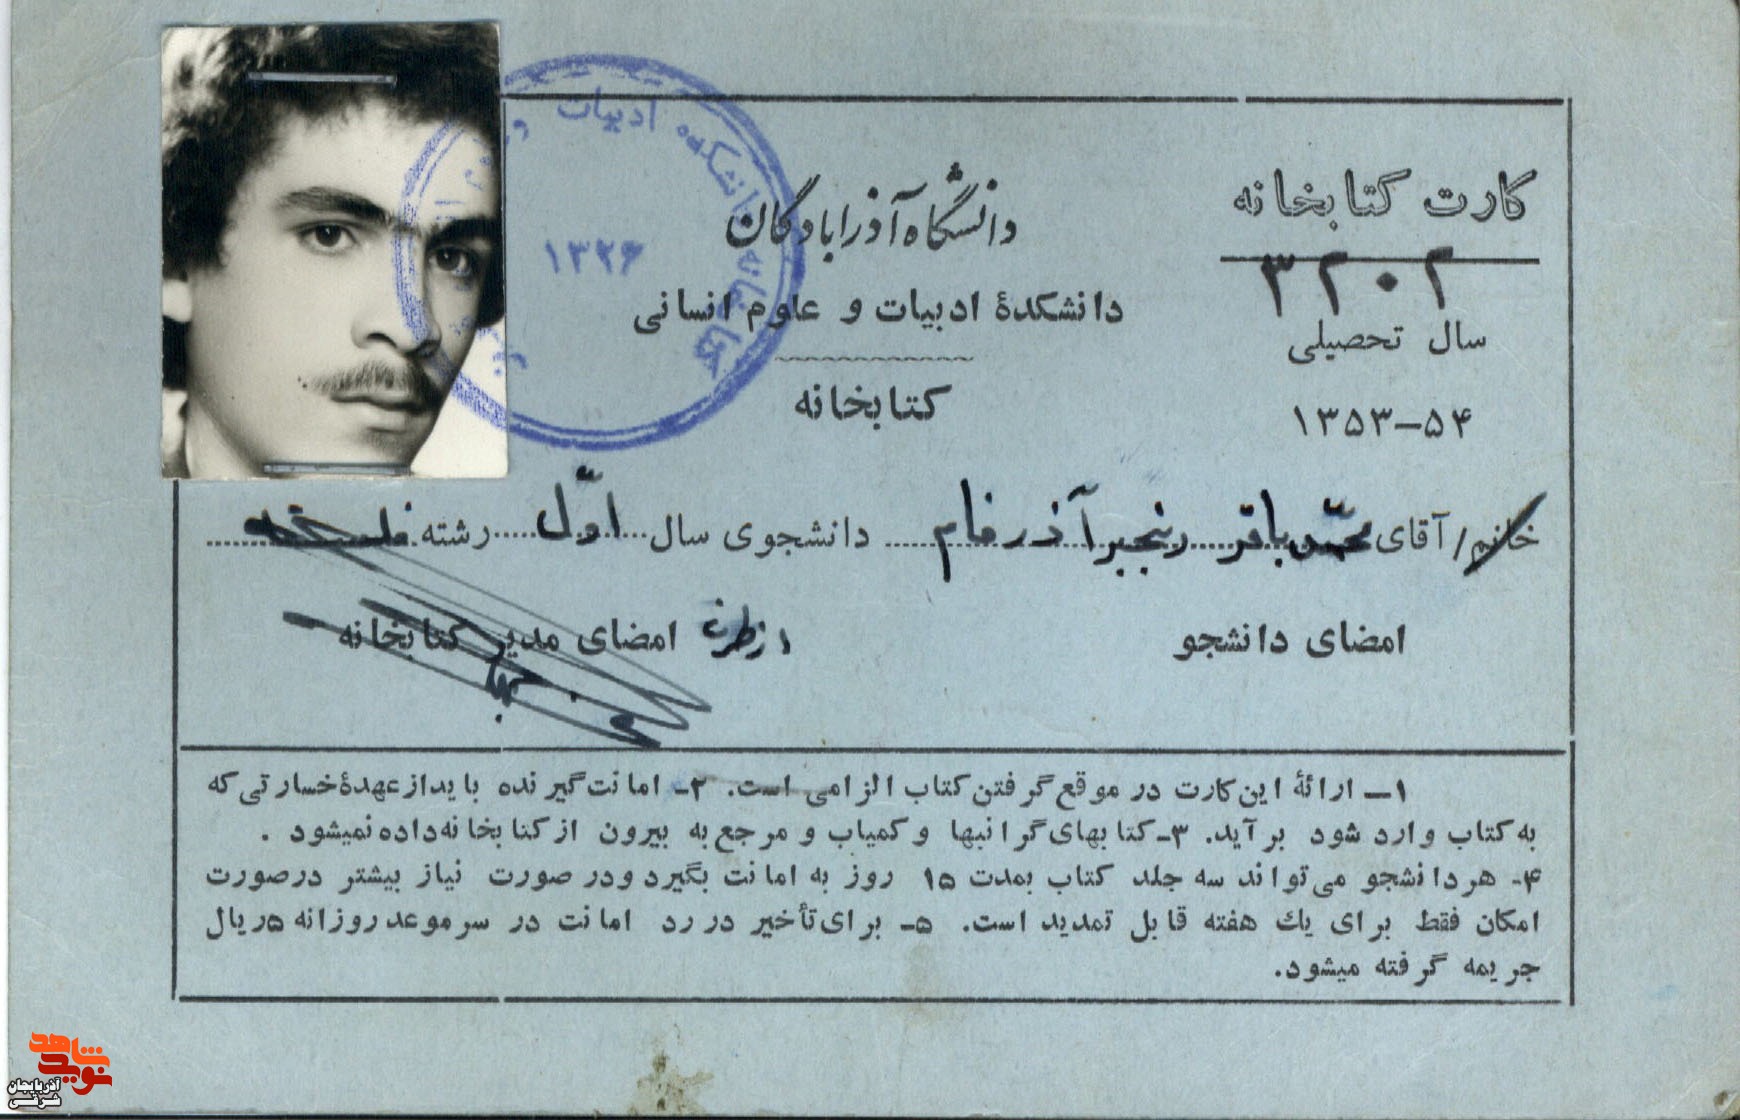 کارت کتابخانه
۳۲۰۲
سال تحصیلی
۱۳۵۳-۵۴
دانشگاه آذرابادگان
دانشکدهٔ ادبیات و علوم انسانی
کتابخانه
دانشکده ادبیات و
کتابخانه
۱۳۲۶
خانم/آقای محمد باقر رنجبر آذرفام دانشجوی سال اول رشته فلسفه
امضای دانشجو
از طرف امضای مدیر کتابخانه
۱- ارائهٔ این کارت در موقع گرفتن کتاب الزامی است. ۲- امانت گیرنده باید از عهدهٔ خسارتی که
به کتاب وارد شود برآید. ۳- کتابهای گرانبها و کمیاب و مرجع به بیرون از کتابخانه داده نمیشود.
۴- هر دانشجو می‌تواند سه جلد کتاب بمدت ۱۵ روز به امانت بگیرد و در صورت نیاز بیشتر در صورت
امکان فقط برای یک هفته قابل تمدید است. ۵- برای تأخیر در رد امانت در سر موعد روزانه ۵ ریال
جریمه گرفته میشود.
نوید شاهد
آذربایجان شرقی